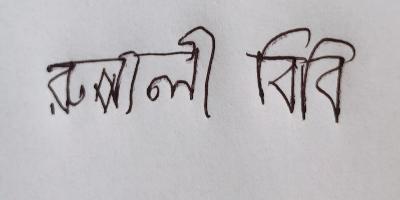 রুপালী বিবি